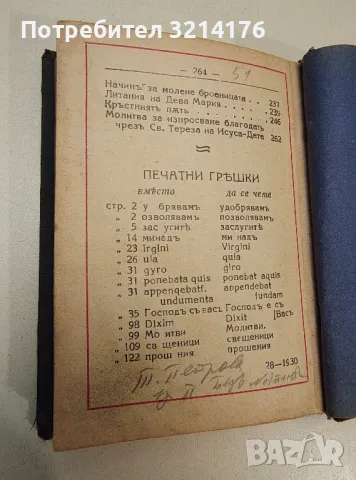 Потребител 3214764
— 264 — 51
Начинъ за молене броеницата . . 231
Литания на Дева Мария . . . . 239
Кръстниятъ пжть . . . . . 246
Молитва за изпросване благодать
чрезъ Св. Тереза на Исуса-Дете 262
ПЕЧАТНИ ГРѢШКИ
вмѣсто да се чете
стр. 2 у брявамъ удобрявамъ
„ 2 озволявамъ позволявамъ
„ 5 зас угитѣ заслугитѣ
„ 14 минадъ ми надъ
„ 23 Irgini Virgini
„ 26 uia quia
„ 31 gyro giro
„ 31 ponebata quis ponebat aquis
„ 31 appenqebatf. appendebat
undumenta fundam
„ 35 Господъ съ васъ Господь е съ
„ 98 Dixim Dixit [Васъ
„ 99 Мо итви Молитви.
„ 109 св щеници священици
„ 122 прош ния прошения
28—1930
Т. Петрова
II
bazar